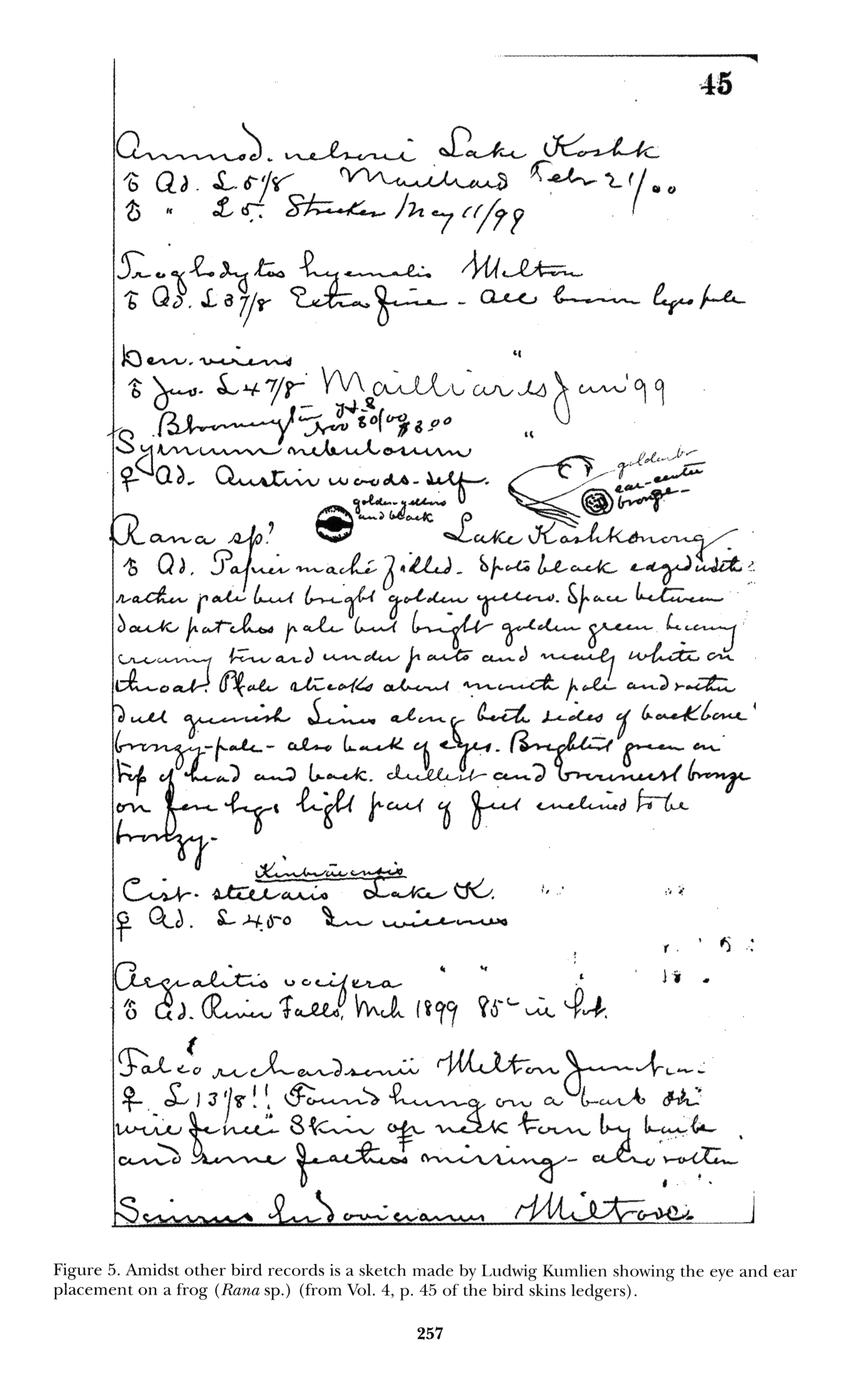 45
Ammod. nelsoni Lake Koshk
♂ Ad. L 5 1/8 Mailliard Febr 21/00
♂ " L 5. Strecker May 11/99
Troglodytes hyemalis Milton
♂ Ad. L 3 7/8 Extra fine - All brown legs pale
Den. virens "
♂ Juv. L 4 7/8 Mailliard Jan '99
Bloomington Nov 30/00 $3.00
Syrnium nebulosum "
♀ Ad. Austin woods - self.
golden br
ear-center
bronze-
golden-yellow
and black
Rana sp? Lake Koshkonong
♂ Ad. Papier maché filled. Spots black edged with
rather pale but bright golden yellow. Space between
dark patches pale but bright golden green becomg
creamy toward under parts and nearly white on
throat. Pale streaks about mouth pale and rather
dull greenish Lines along both sides of backbone
bronzy-pale - also back of eyes. Brightest green on
top of head and back. dullest and brownest bronze
on fore legs light part of feet enclined to be
bronzy-
Cist. stellaris Lake K.
♀ Ad. L 4.50
Aegialitis vocifera " "
♂ Ad. River Falls, Mch 1899 85c in lot.
Falco richardsonii Milton Junction
♀ L 13 1/8!! Found hung on a barb on
wire fence Skin of neck torn by barb
and some feathers missing - also rotten
Seiurus ludovicianus Milton
Figure 5. Amidst other bird records is a sketch made by Ludwig Kumlien showing the eye and ear
placement on a frog (Rana sp.) (from Vol. 4, p. 45 of the bird skins ledgers).
257